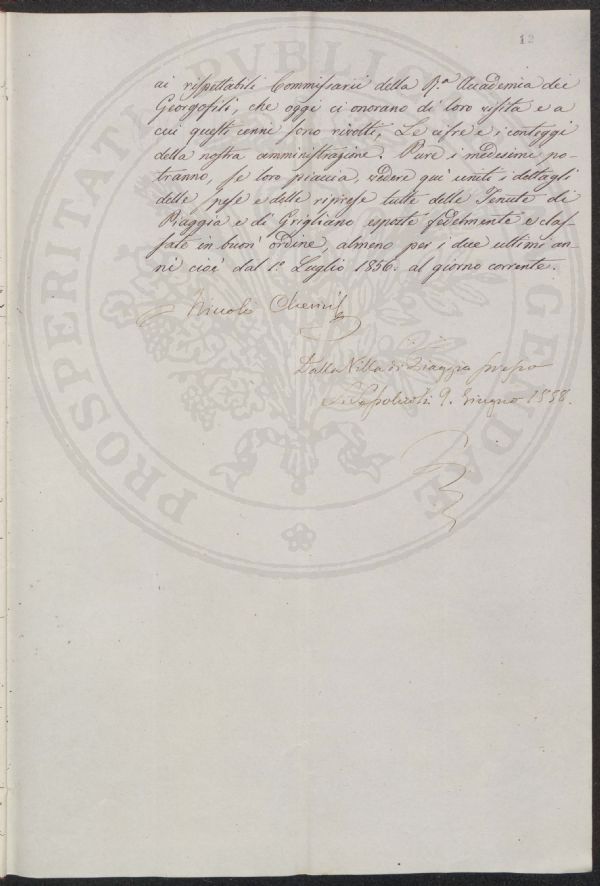 12
ai rispettabili Commissarii della R.ª Accademia dei
Georgofili, che oggi ci onorano di loro visita e a
cui questi cenni sono rivolti, Le cifre e i conteggi
della nostra amministrazione. Pure i medesimi po-
tranno, se loro piaccia, vedere qui uniti i dettagli
delle spese e delle riprese tutte delle Tenute di
Piaggia e di Grigliano esposte fedelmente e clas-
sate in buon' ordine, almeno per i due ultimi an-
ni cioè dal 1.º Luglio 1856. al giorno corrente.
Niccolò
Dalla Villa di Piaggia presso
9. Giugno 1858.
PROSPERITATI PUBLICAE AUGENDAE